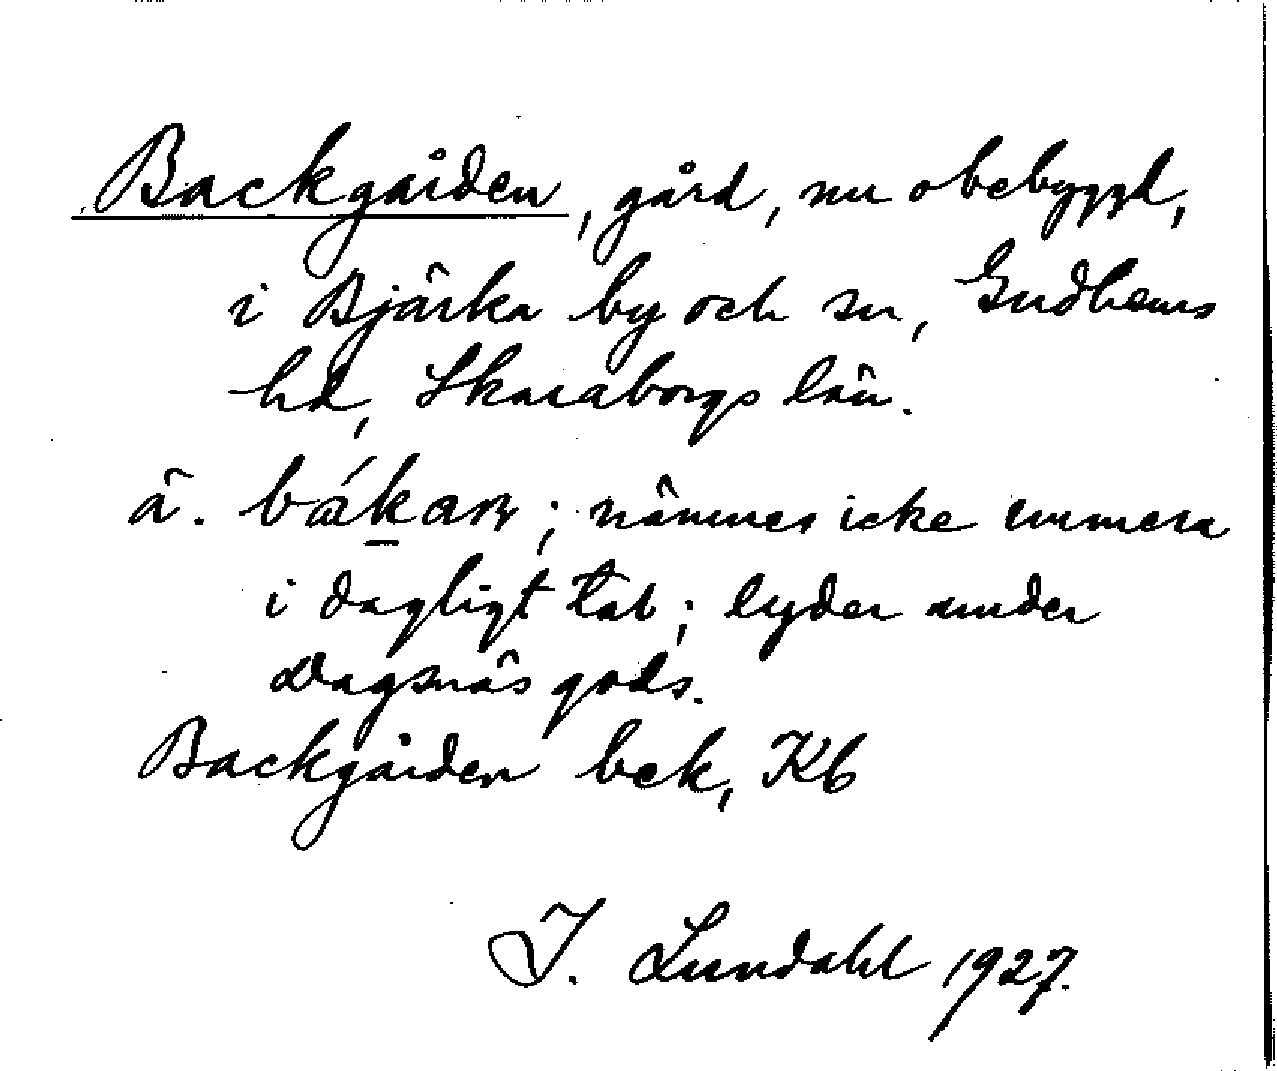 Backgården, gård, nu obebyggd,
i Bjärka by och sn, Gudhems
hd, Skaraborgs län.
ä. bákaʀ; nämnes icke numera
i dagligt tal; lyder under
Dagsnäs gods.
Backgården bek, Kb
I. Lundahl 1927.